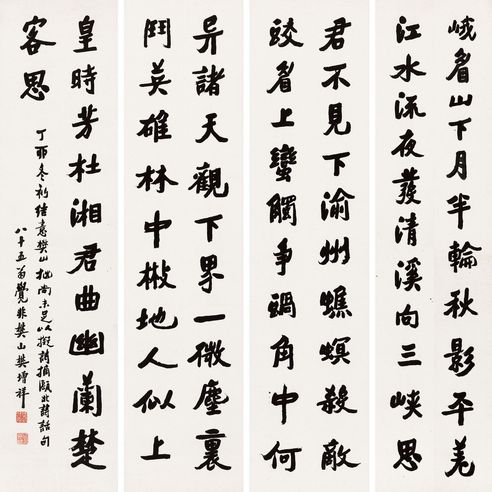 峨眉山下月半輪秋影平羌
江水流夜發清溪向三峽思
君不見下渝州蟭螟殺敵
蚊眉上蠻觸爭蝸角中何
异諸天觀下界一微塵裏
鬥英雄林中椒地人似上
皇時芳杜湘君曲幽蘭楚
客思
丁卯冬初 樊山 尚未足以 甌北詩話句
八十五翁覺非樊山樊增祥